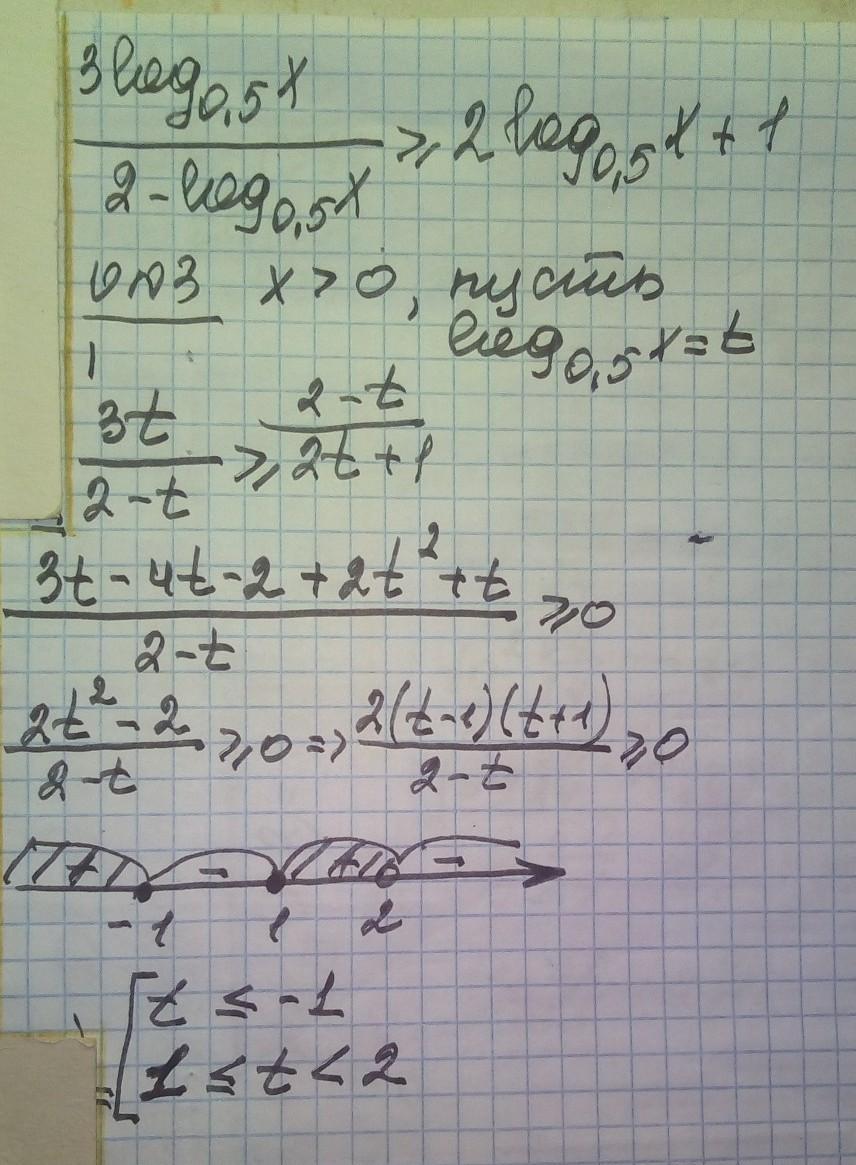 3log₀,₅x / 2 - log₀,₅x ⩾ 2log₀,₅x + 1
одз x > 0, пусть
log₀,₅x = t
3t / 2 - t ⩾ 2 - t / 2t + 1
3t - 4t - 2 + 2t² + t / 2 - t ⩾ 0
2t² - 2 / 2 - t ⩾ 0 => 2(t-1)(t+1) / 2 - t ⩾ 0
+ - + -
-1 1 2
[ t ≤ -1
1 ≤ t < 2